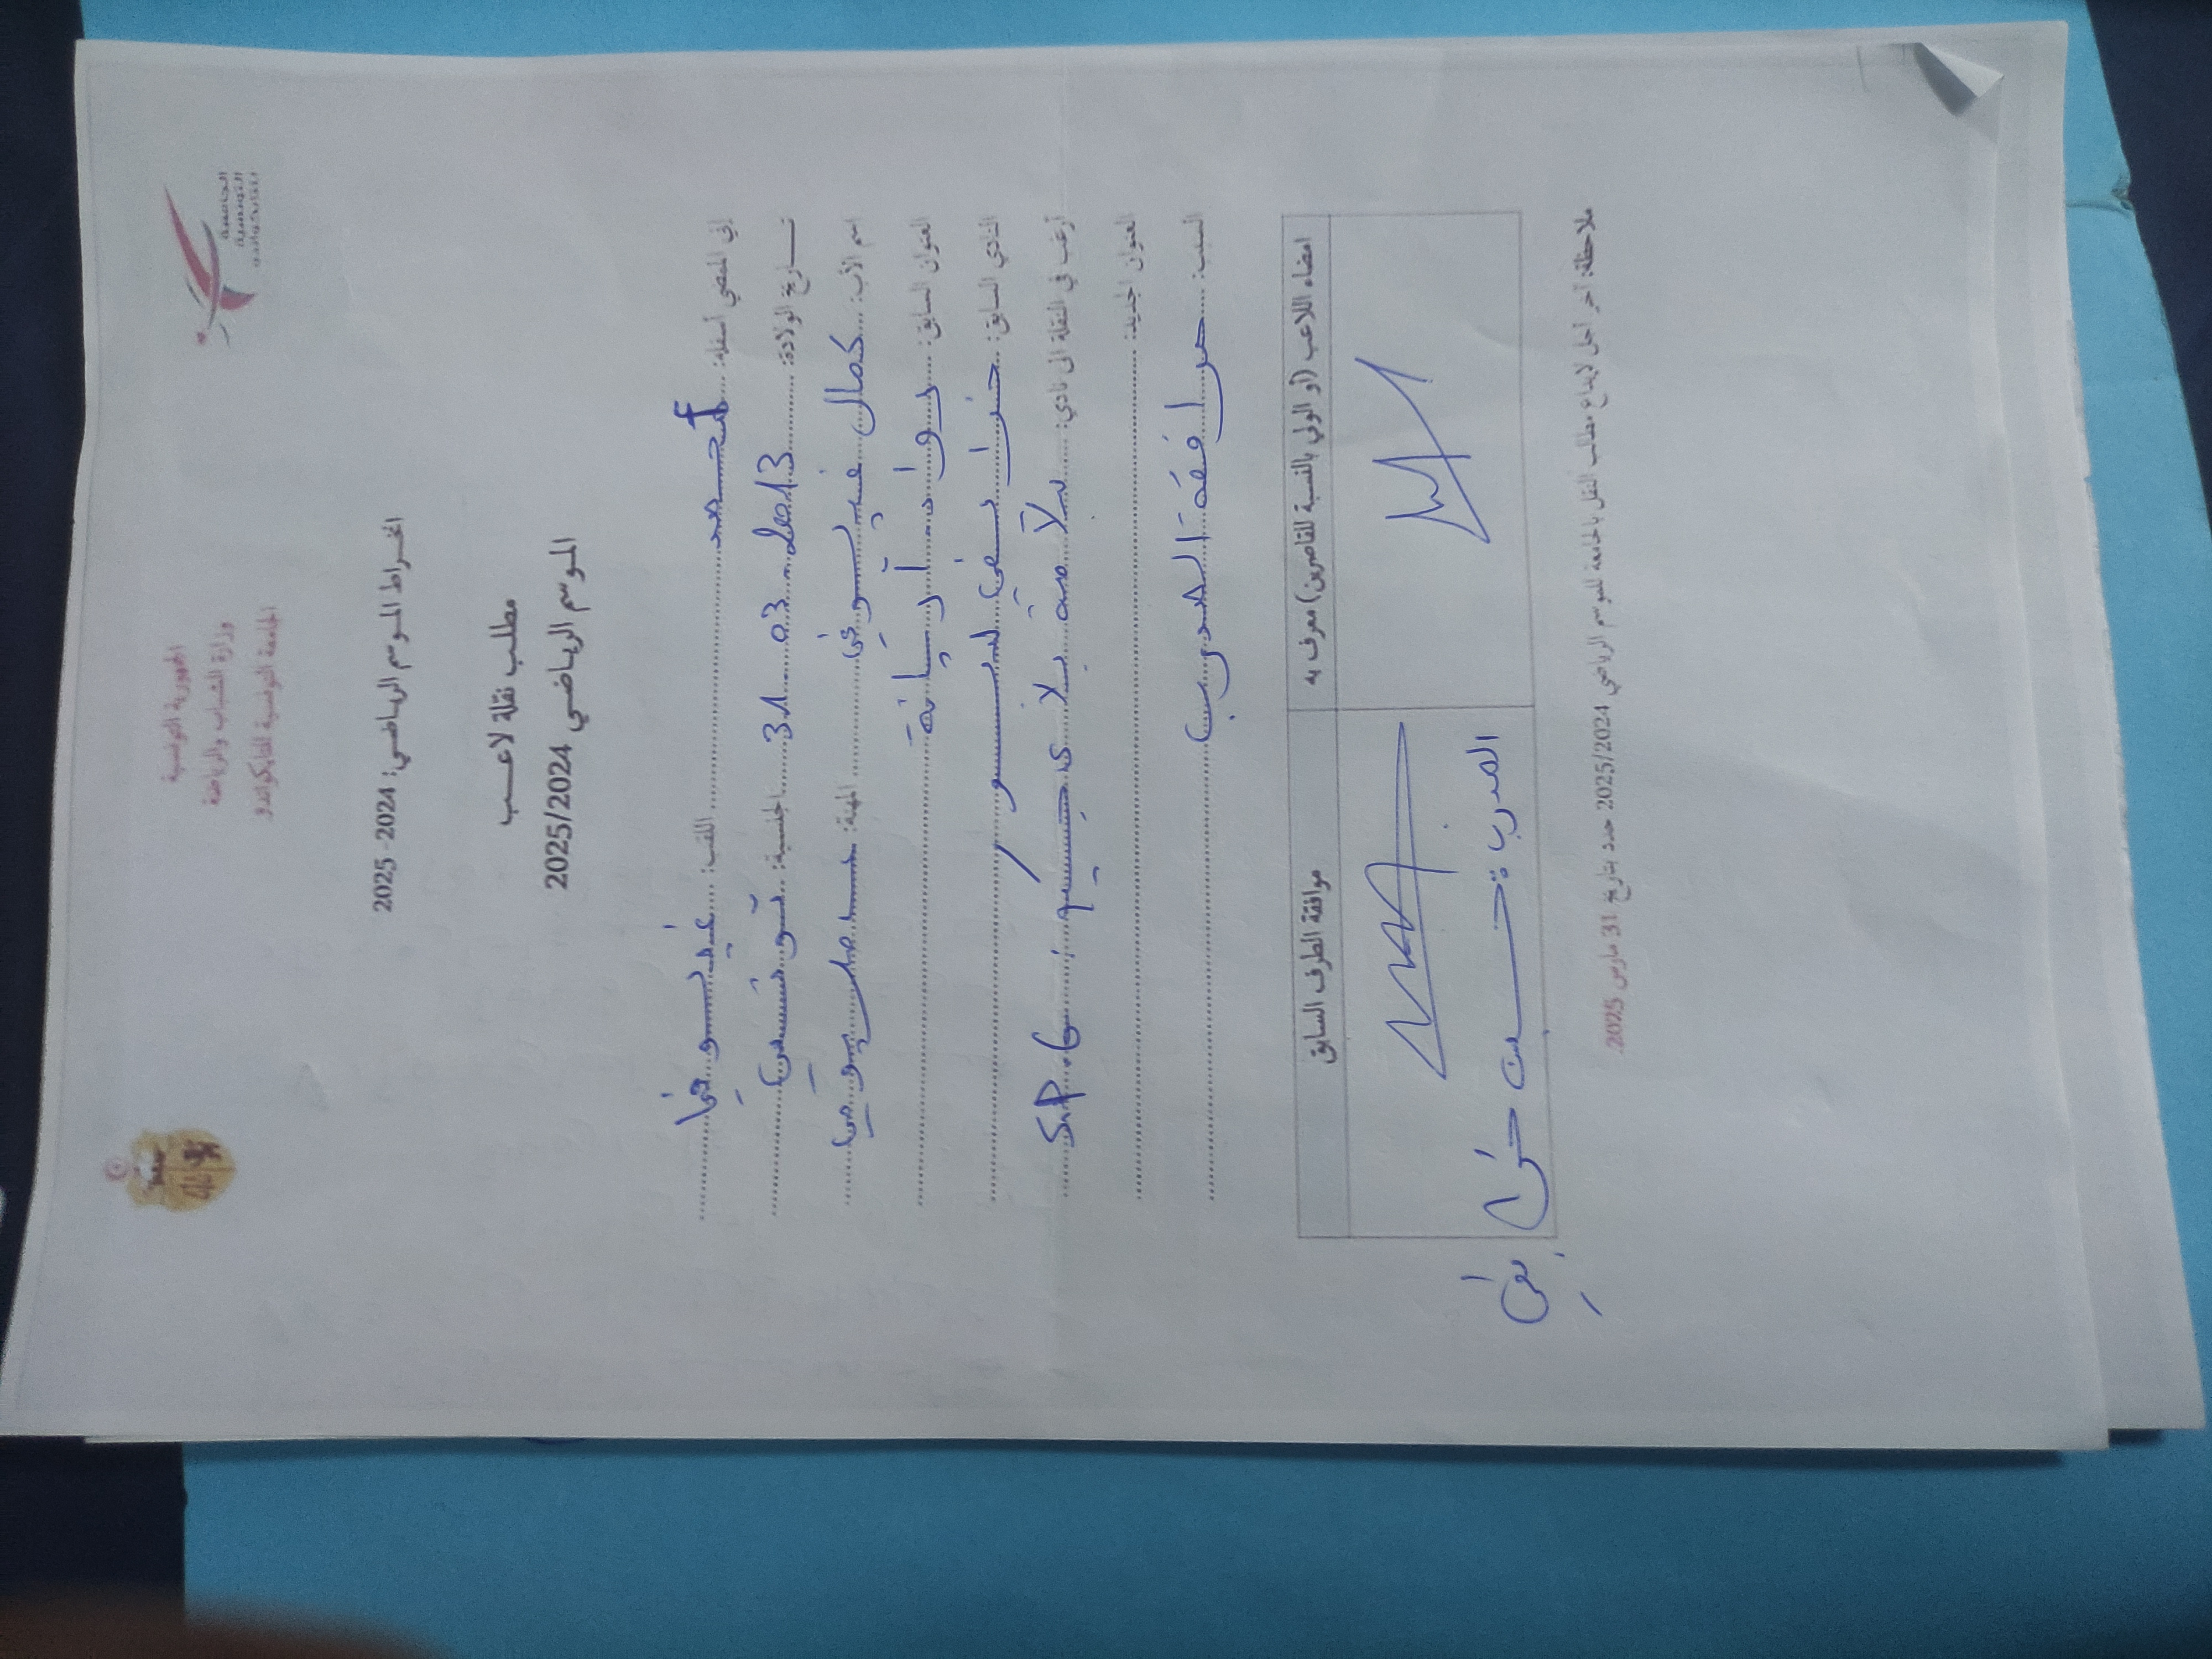 الجمهورية التونسية
وزارة الشباب والرياضة
الجامعة التونسية للتايكواندو
الجامعة
التونسية
للتايكواندو
انخراط الموسم الرياضي: 2024- 2025
مطلب نقلة لاعب
الموسم الرياضي 2025/2024
إني الممضي أسفله: أحمد اللقب: غيلوفي
تاريخ الولادة: 31 03 2013 الجنسية: تونسي
اسم الأب: كمال غيلوفي المهنة:
العنوان السابق: رواد أريانة
النادي السابق:
أرغب في النقلة الى نادي: S.P.G
العنوان الجديد:
السبب: مرافقة المدرب
امضاء اللاعب (أو الولي بالنسبة للقاصرين) معرف به
موافقة الطرف السابق
المدرب
ملاحظة: آخر أجل لإيداع مطالب النقل بالجامعة للموسم الرياضي 2025/2024 حدد بتاريخ 31 مارس 2025.